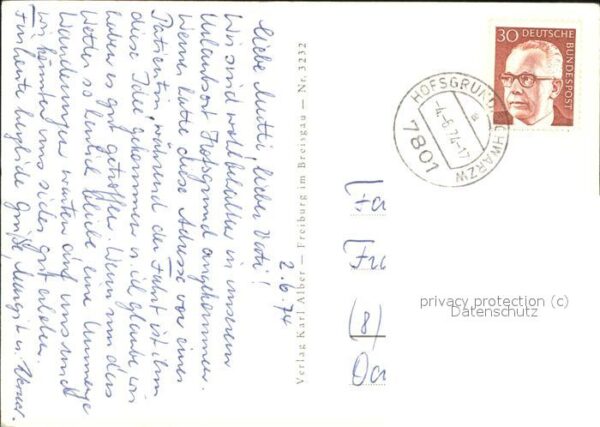 2.6.74
Liebe Mutti, lieber Vati!
Wir sind wohlbehalten in unserem
Urlaubsort Hofsgrund angekommen.
Werner hatte diese Adresse von einer
Patientin, während der Fahrt ist ihm
diese Idee gekommen u. ich glaube wir
haben es gut getroffen. Wenn nun das
Wetter so herrlich bliebe eine Unmenge
Wanderungen warten auf uns und
wir könnten uns sicher gut erholen.
Für heute herzliche Grüße, Margit u. Werner.
Verlag Karl Alber — Freiburg im Breisgau — Nr. 3232
30 DEUTSCHE
BUNDESPOST
HOFSGRUND SCHWARZW
a
-4.-6.74-17
7801
Fa
(8)
privacy protection (c)
Datenschutz